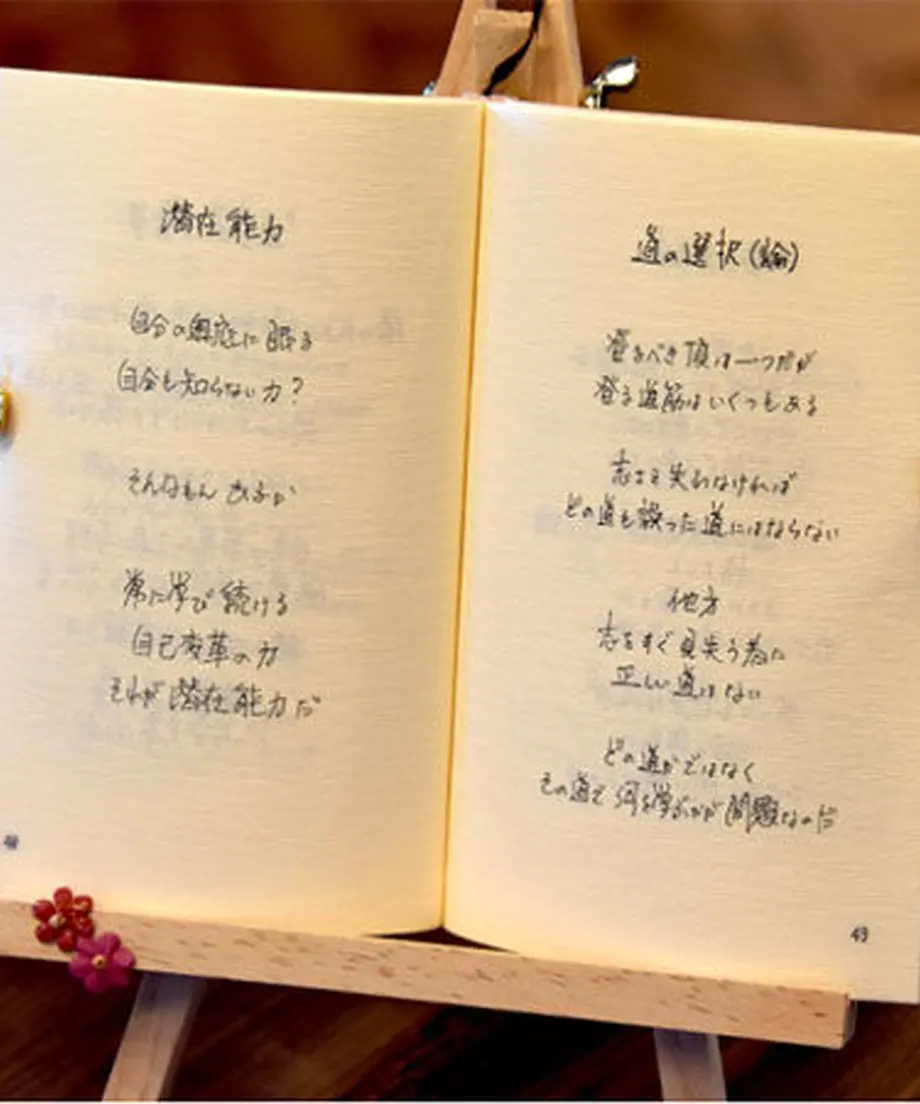 潜在能力
自分の奥底に眠る
自分も知らない力?
そんなもん あるか
常に学び続ける
自己変革の力
それが潜在能力だ
48
道の選択(論)
登るべき頂は一つだが
登る道筋はいくつもある
志さえ失わなければ
どの道も誤った道にはならない
他方
志をすぐ見失う為に
正しい道はない
どの道かではなく
その道で何を学ぶかが問題なのだ
49